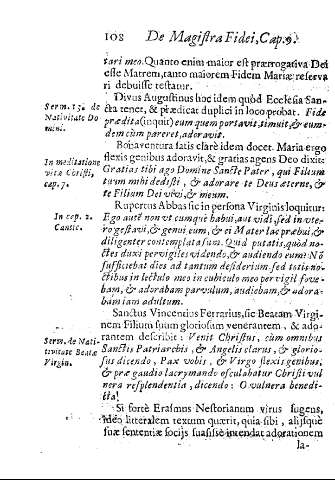 108 De Magistra Fidei, Cap. 9.
tari meo. Quanto enim maior est prærrogativa Dei
esse Matrem, tanto maiorem Fidem Mariæ reserva
ri debuisse testatur.
Divus Augustinus hoc idem quòd Ecclesia San-
Serm. 13. de
cta tenet, & prædicat duplici in loco probat. Fide
Nativitate Do
prædita (inquit) eum quem portavit, timuit, & eum-
mini.
dem cùm pareret, adoravit.
Bonaventura satis clarè idem docet. Maria ergo
flexis genibus adoravit, & gratias agens Deo dixit:
In meditatione
Gratias tibi ago Domine Sancte Pater, qui Filium
vitæ Christi,
tuum mihi dedisti, & adorare te Deus æterne, &
cap. 7.
te Filium Dei vivi, & meum.
Rupertus Abbas sic in persona Virginis loquitur:
In cap. 2.
Ego autè non vt cumquè habui, aut vidi, sed in vte-
Cantic.
ro gestavi, & genui eum, & ei Mater lac præbui, &
diligenter contemplata sum. Quid putatis, quòd no-
ctes duxi pervigiles videndo, & audiendo eum? Nō
sufficiebat dies ad tantum desiderium, sed totis no-
ctibus in lectulo meo in cubiculo meo pervigil fove-
bam, & adorabam parvulum, audiebam, & adora-
bam iam adultum.
Sanctus Vincenius Ferrarius, sic Beatam Virgi-
nem Filium suum gloriosum venerantem, & ado-
rantem describit: Venit Christus, cùm omnibus
Serm. de Nati-
Sanctis Patriarchis, & Angelis clarus, & glorio-
vitate Beatæ
sus dicendo, Pax vobis, & Virgo flexis genibus,
Virgin.
& præ gaudio lacrymando osculabatur Christi vul
nera resplendentia, dicendo: O vulnera benedi-
cta!
Si fortè Erasmus Nestorianum virus sugens,
ideo litteralem textum quærit, quia sibi, alijsque
suæ sententiæ socijs suasisse intendat adorationem
Ia-